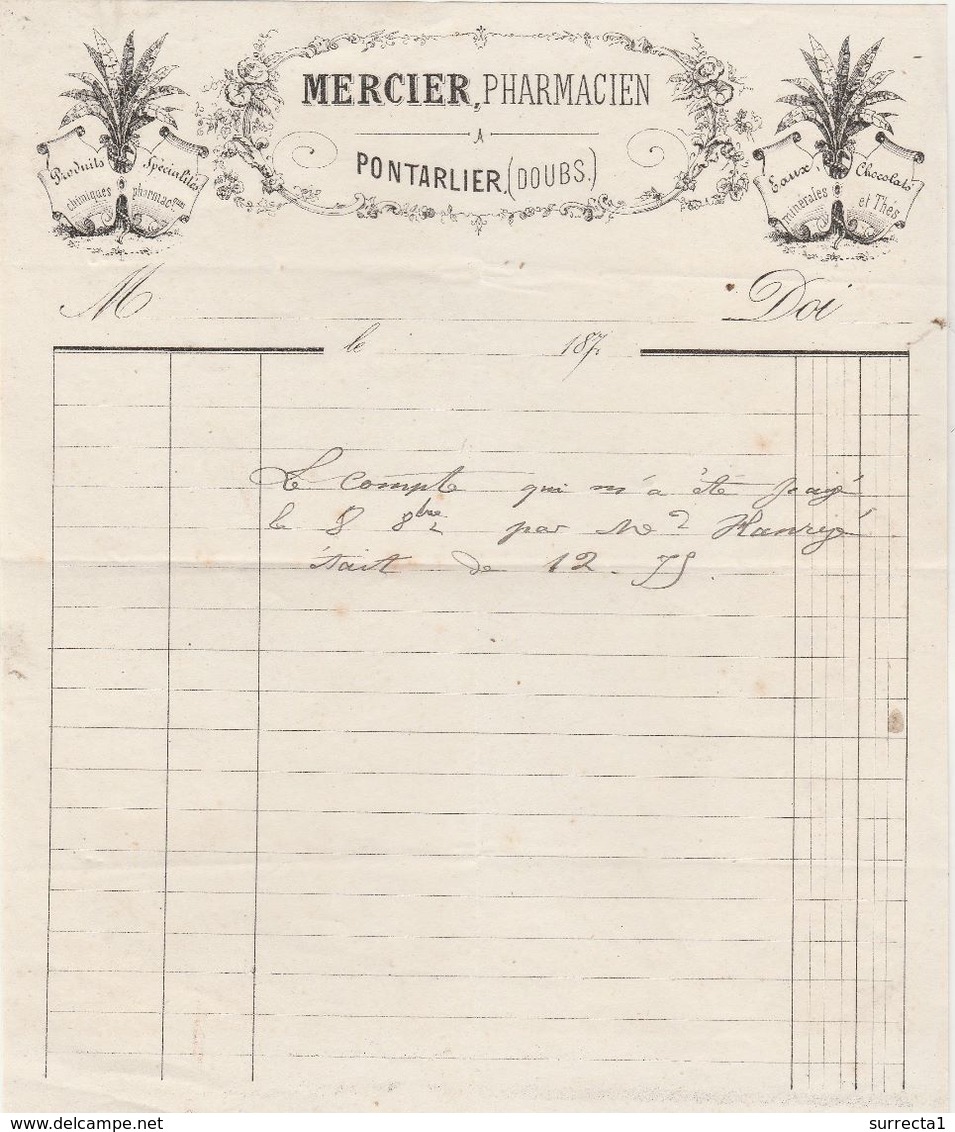 MERCIER, PHARMACIEN
A
PONTARLIER, (DOUBS.)
Produits chimiques
Spécialités pharmacques
Eaux minérales
Chocolats et Thés
M Doi
le 187
Le compte qui m'a été payé
le 8 8bre par Me
était de 12-75.
www.delcampe.net
surrecta1